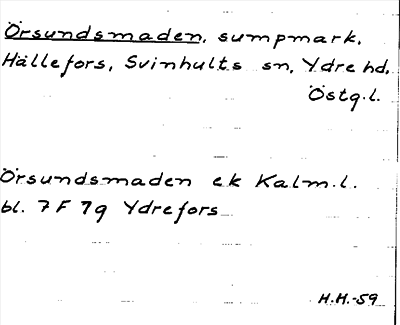 Örsundsmaden, sumpmark,
Hällefors, Svinhults sn, Ydre hd,
Östg.l.
Örsundsmaden ek Kalm.l.
bl. 7 F 7g Ydrefors
H.H.-59